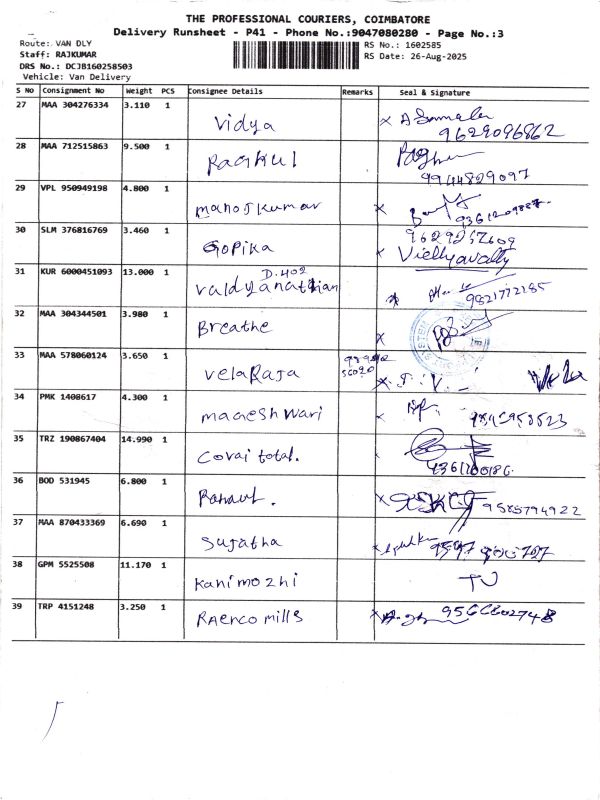 THE PROFESSIONAL COURIERS, COIMBATORE
Delivery Runsheet - P41 - Phone No.:9047080280 - Page No.:3
Route: VAN DLY
RS No.: 1602585
Staff: RAJKUMAR
RS Date: 26-Aug-2025
DRS No.: DCJB160258503
Vehicle: Van Delivery
S No Consignment No Weight PCS Consignee Details Remarks Seal & Signature
27 MAA 304276334 3.110 1
Vidya
9629096862
28 MAA 712515863 9.500 1
9944829097
29 VPL 950949198 4.800 1
manojkumar
30 SLM 376816769 3.460 1
Gopika
31 KUR 6000451093 13.000 1
D.402
Vaidyanathan
9821772185
32 MAA 304344501 3.980 1
Breathe
33 MAA 578060124 3.650 1
VelaRaja
34 PMK 1408617 4.300 1
mageshwari
35 TRZ 190867404 14.990 1
Covai total.
36 BOD 531945 6.800 1
9585794922
37 MAA 870433369 6.690 1
Sujatha
38 GPM 5525508 11.170 1
Kanimozhi
39 TRP 4151248 3.250 1
mills